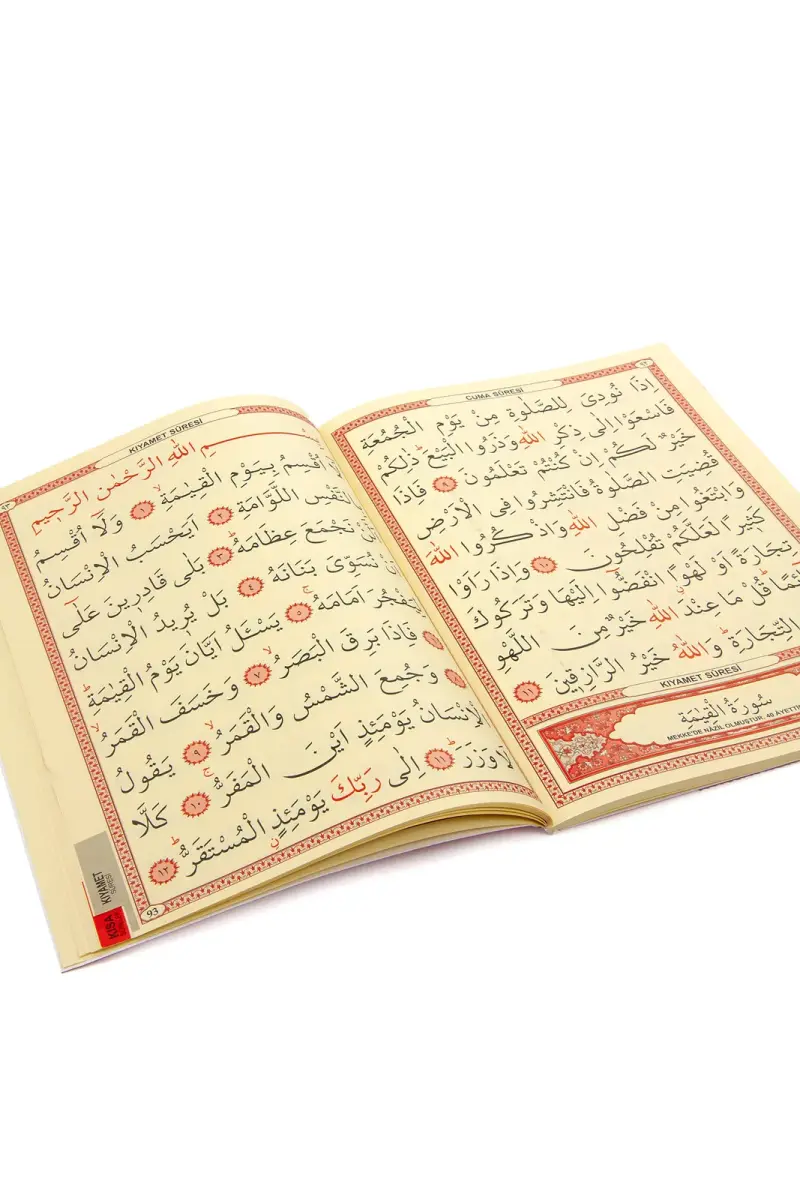 CUMA SÛRESİ
اِذَا نُودِىَ لِلصَّلٰوةِ مِنْ يَوْمِ الْجُمُعَةِ
فَاسْعَوْا اِلٰى ذِكْرِ اللّٰهِ وَذَرُوا الْبَيْعَ ذٰلِكُمْ
خَيْرٌ لَكُمْ اِنْ كُنْتُمْ تَعْلَمُونَ ٩ فَاِذَا
قُضِيَتِ الصَّلٰوةُ فَانْتَشِرُوا فِى الْاَرْضِ
وَابْتَغُوا مِنْ فَضْلِ اللّٰهِ وَاذْكُرُوا اللّٰهَ
كَثِيرًا لَعَلَّكُمْ تُفْلِحُونَ ١٠ وَاِذَا رَاَوْا
تِجَارَةً اَوْ لَهْوًا انْفَضُّوا اِلَيْهَا وَتَرَكُوكَ
قَائِمًا قُلْ مَا عِنْدَ اللّٰهِ خَيْرٌ مِنَ اللَّهْوِ
التِّجَارَةِ وَاللّٰهُ خَيْرُ الرَّازِقِينَ ١١
KIYAMET SÛRESİ
سُورَةُ الْقِيٰمَةِ
MEKKE'DE NÂZİL OLMUŞTUR, 40 AYETTİR
KIYAMET SÛRESİ
٩٣
اللّٰهِ الرَّحْمٰنِ الرَّحِيمِ
اُقْسِمُ بِيَوْمِ الْقِيٰمَةِ ١ وَلَا اُقْسِمُ
النَّفْسِ اللَّوَّامَةِ ٢ اَيَحْسَبُ الْاِنْسَانُ
نَجْمَعَ عِظَامَهُ ٣ بَلٰى قَادِرِينَ عَلٰى
نُسَوِّىَ بَنَانَهُ ٤ بَلْ يُرِيدُ الْاِنْسَانُ
لِيَفْجُرَ اَمَامَهُ ٥ يَسْئَلُ اَيَّانَ يَوْمُ الْقِيٰمَةِ
فَاِذَا بَرِقَ الْبَصَرُ ٧ وَخَسَفَ الْقَمَرُ
وَجُمِعَ الشَّمْسُ وَالْقَمَرُ ٩ يَقُولُ
الْاِنْسَانُ يَوْمَئِذٍ اَيْنَ الْمَفَرُّ ١٠ كَلَّا
لَا وَزَرَ ١١ اِلٰى رَبِّكَ يَوْمَئِذٍ الْمُسْتَقَرُّ ١٢
93
KIYAMET
SÛRESİ
KISA